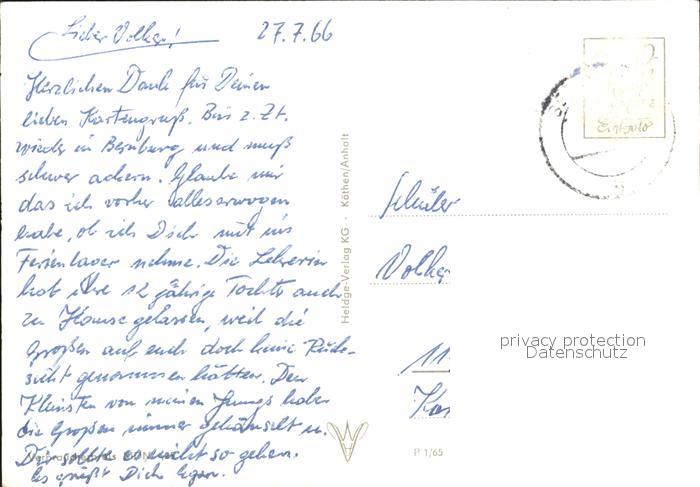 Lieber Volker!
27.7.66
Herzlichen Dank für Deinen
lieben Kartengruß. Bin z. Zt.
wieder in Bernburg und muß
schwer ackern. Glaube mir
das ich vorher alles erwogen
habe, ob ich Dich mit ins
Ferienlager nehme. Die Lehrerin
hat ihre 12 jährige Tochter auch
zu Hause gelassen, weil die
Großen auf euch doch keine Rück-
sicht genommen hätten. Den
Kleinsten von meinen Jungs haben
die Großen immer gehänselt u.
Dir sollte es nicht so gehen.
Es grüßt Dich Egon.
Heldge-Verlag KG · Köthen/Anhalt
Schüler
Volker
11
privacy protection
Datenschutz
P 1/65